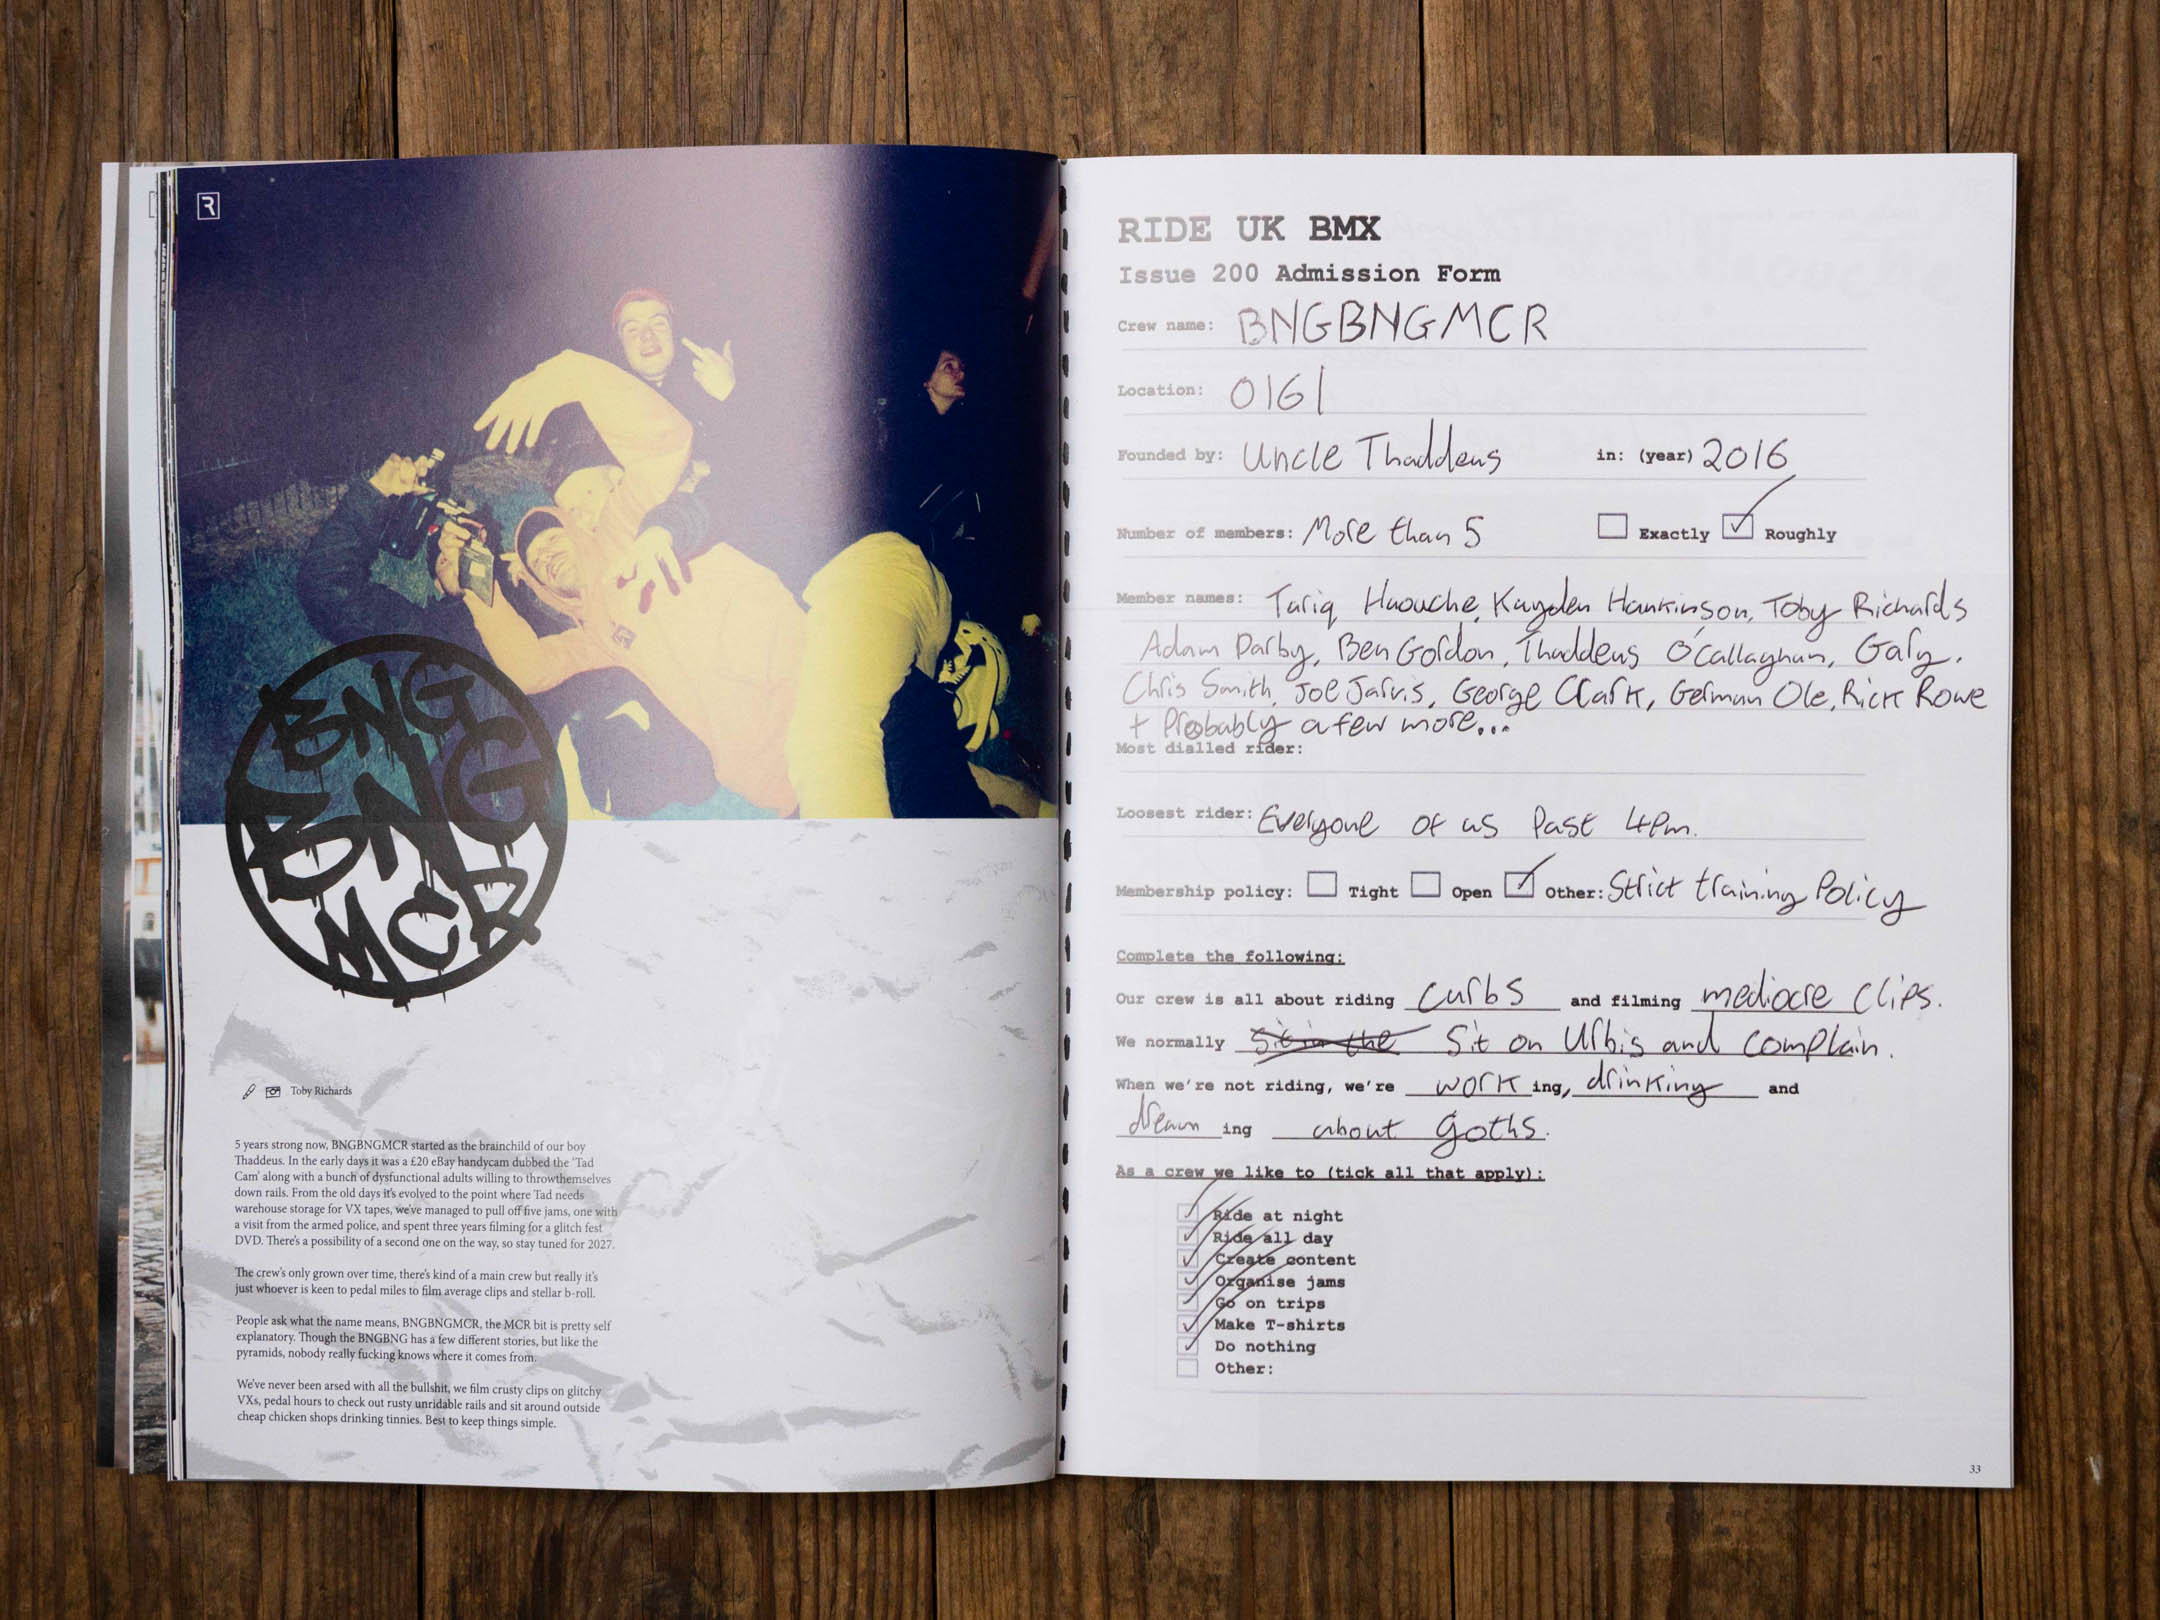 R
BNG
BNG
MCR
Toby Richards
5 years strong now, BNGBNGMCR started as the brainchild of our boy
Thaddeus. In the early days it was a £20 eBay handycam dubbed the 'Tad
Cam' along with a bunch of dysfunctional adults willing to throwthemselves
down rails. From the old days it's evolved to the point where Tad needs
warehouse storage for VX tapes, we've managed to pull off five jams, one with
a visit from the armed police, and spent three years filming for a glitch fest
DVD. There's a possibility of a second one on the way, so stay tuned for 2027.
The crew's only grown over time, there's kind of a main crew but really it's
just whoever is keen to pedal miles to film average clips and stellar b-roll.
People ask what the name means, BNGBNGMCR, the MCR bit is pretty self
explanatory. Though the BNGBNG has a few different stories, but like the
pyramids, nobody really fucking knows where it comes from.
We've never been arsed with all the bullshit, we film crusty clips on glitchy
VXs, pedal hours to check out rusty unridable rails and sit around outside
cheap chicken shops drinking tinnies. Best to keep things simple.
RIDE UK BMX
Issue 200 Admission Form
Crew name: BNGBNGMCR
Location: 0161
Founded by: Uncle Thaddeus in: (year) 2016
Number of members: More than 5 Exactly Roughly
Member names: Tariq Haouche, Kayden Hankinson, Toby Richards
Adam Darby, Ben Gordon, Thaddeus O'Callaghan, Gary.
Chris Smith, Joe Jarvis, George Clark, German Ole, Rick Rowe
+ Probably a few more...
Most dialled rider:
Loosest rider: Everyone of us Past 4Pm.
Membership policy: Tight Open Other: Strict training Policy
Complete the following:
Our crew is all about riding curbs and filming mediocre clips.
We normally sit in the Sit on Urbis and complain.
When we're not riding, we're work ing, drinking and
dream ing about goths.
As a crew we like to (tick all that apply):
Ride at night
Ride all day
Create content
Organise jams
Go on trips
Make T-shirts
Do nothing
Other:
33